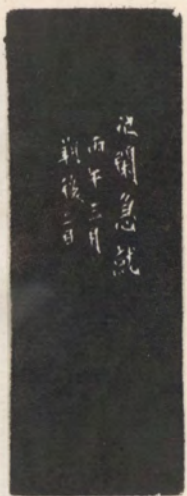 蘭急就
丙午三月
朔後二日